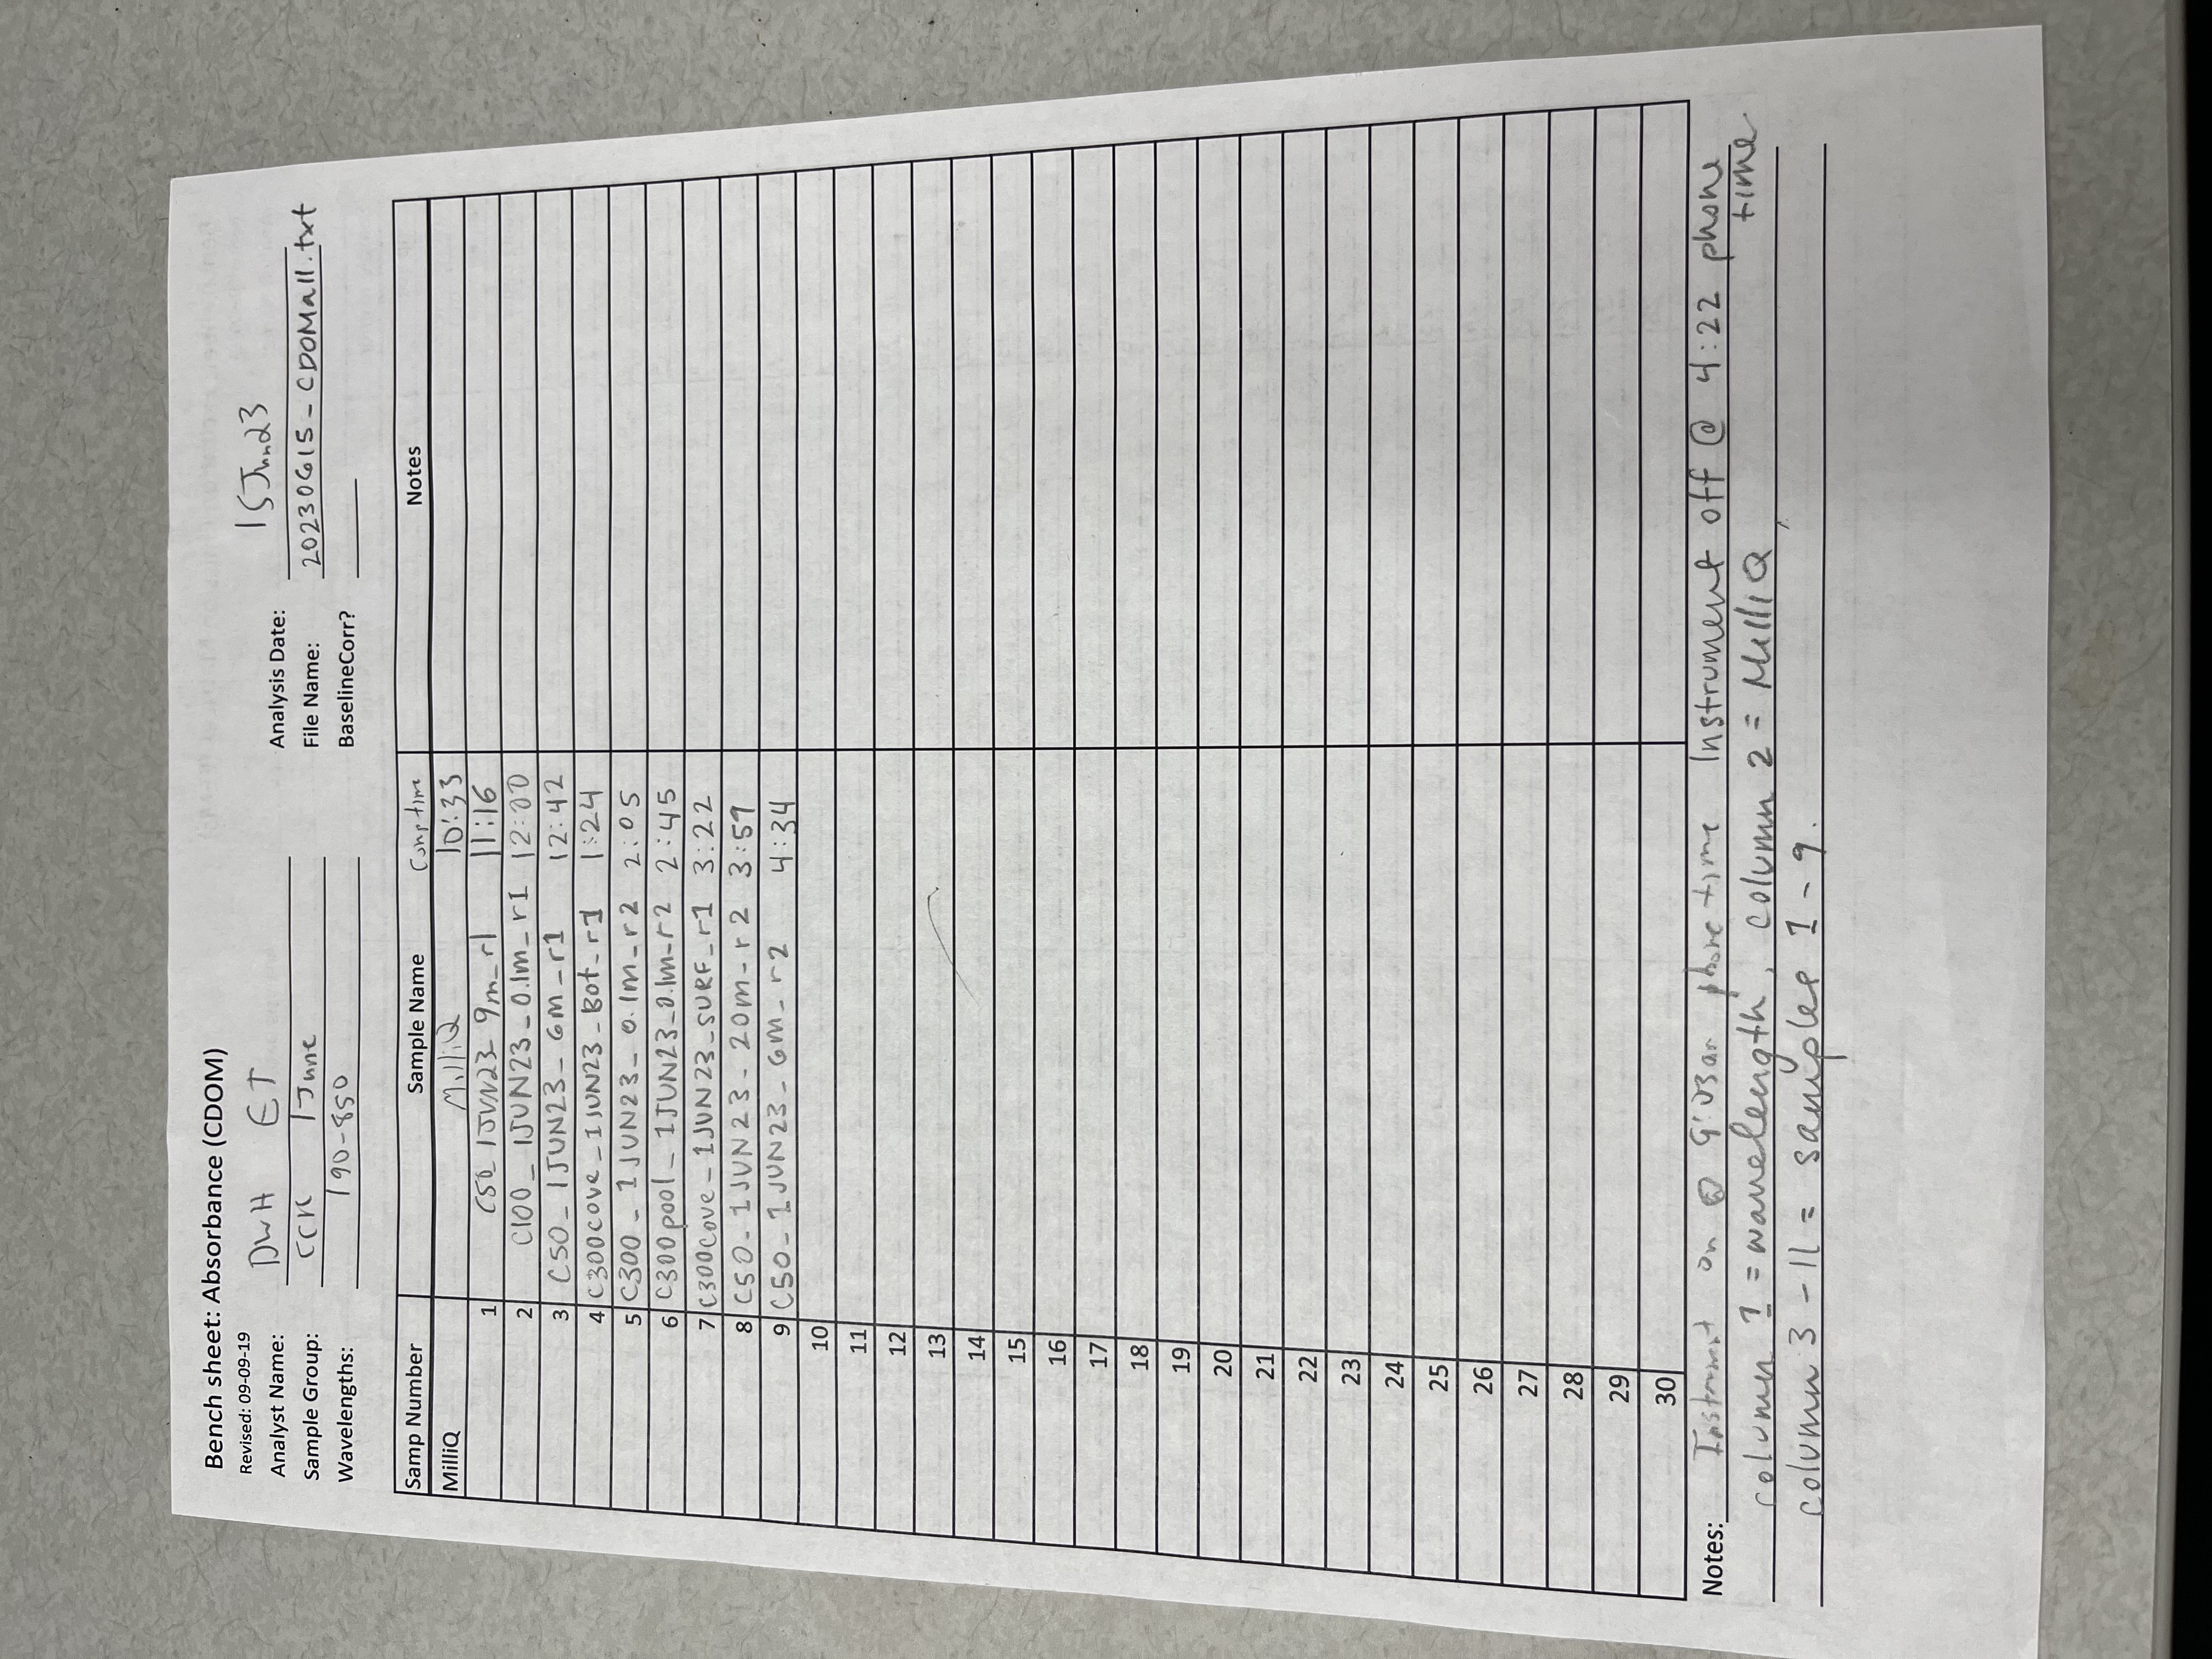 Bench sheet: Absorbance (CDOM)
Revised: 09-09-19
Analyst Name: DWH ET Analysis Date: 15Jun23
Sample Group: CCR 1June File Name: 20230615-CDOMall.txt
Wavelengths: 190-850 BaselineCorr?
Samp Number Sample Name Comp time Notes
MilliQ MilliQ 10:33
1 C50_1JUN23_9m_r1 11:16
2 C100_1JUN23_0.1m_r1 12:00
3 C50_1JUN23_6m_r1 12:42
4 C300cove_1JUN23_Bot_r1 1:24
5 C300_1JUN23_0.1m_r2 2:05
6 C300pool_1JUN23_0.1m_r2 2:45
7 C300cove_1JUN23_SURF_r1 3:22
8 C50_1JUN23_20m_r2 3:59
9 C50_1JUN23_6m_r2 4:34
10
11
12
13
14
15
16
17
18
19
20
21
22
23
24
25
26
27
28
29
30
Notes: Instrument on @ 9:03am phone time Instrument off @ 4:22 phone
time
column 1 = wavelength, column 2 = MilliQ,
column 3-11 = samples 1-9.